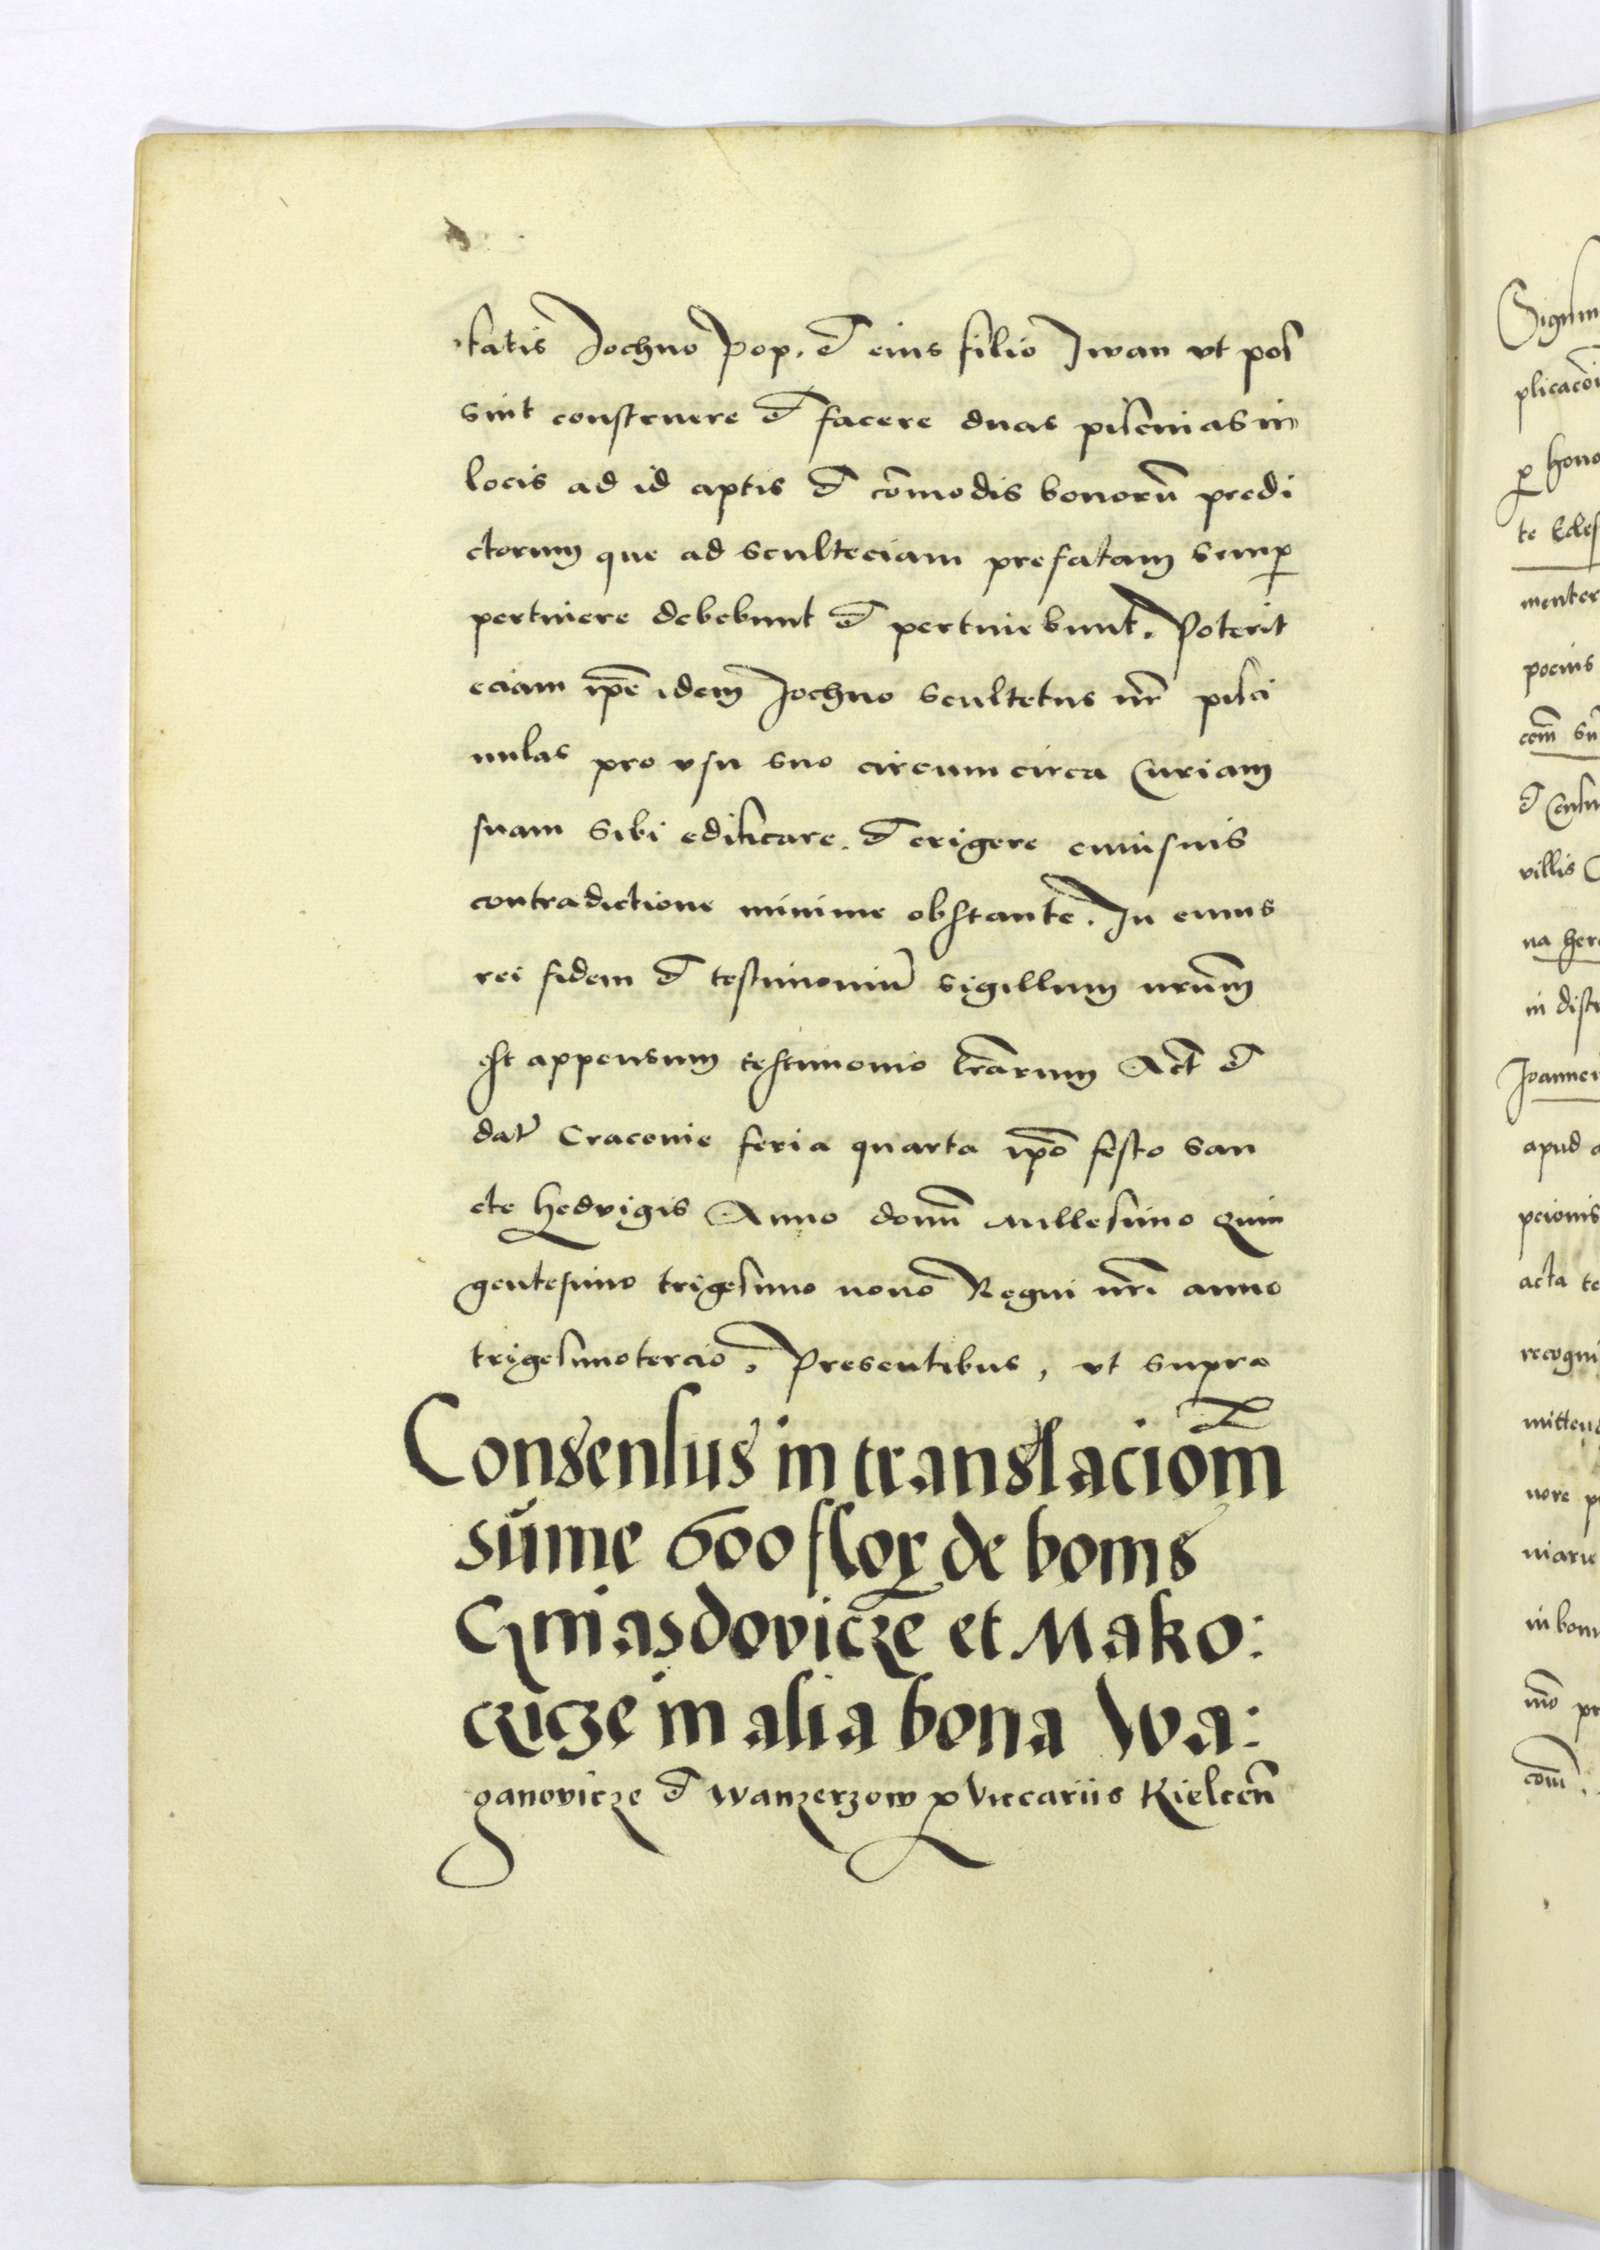 tatis Jochno Pop. et eius filio Iwan vt pos
sint construere et facere duas piscinias in
locis ad id aptis et cōmodis bonorū predi
ctorum que ad sculteciam prefatam semp
pertinere debebunt et pertinebunt. Poterit
eciam ipē idem Jochno scultetus nr̄ pisci
nulas pro vsu suo circum circa Curiam
suam sibi edificare. et erigere cuiusuis
contradictione minime obstante. In cuius
rei fidem et testimoniū sigillum nrūm
est appensum testimonio lrārum Act̄ et
dat̄ Cracovie feria quarta ipō festo san
cte Hedvigis Anno domī millesimo quin
gentesimo trigesimo nono Regni nrī anno
trigesimotercio. Presentibus, vt supra
Consensus in translaciom̄
sūme 600 flor de bonis
Gniasdovicze et Mako:
czicze in alia bona Wa:
ganovicze et Wanzerzow p Viccariis Kielceñ
Sigism
plicacōi
p hono
te Ecles
menter
pocius
com̄ su
et Censu
villis
na here
in distr
Joannem
apud a
pcionis
acta te
recogni
mittend
nore p
niarie
in boni
mo pr
com̄